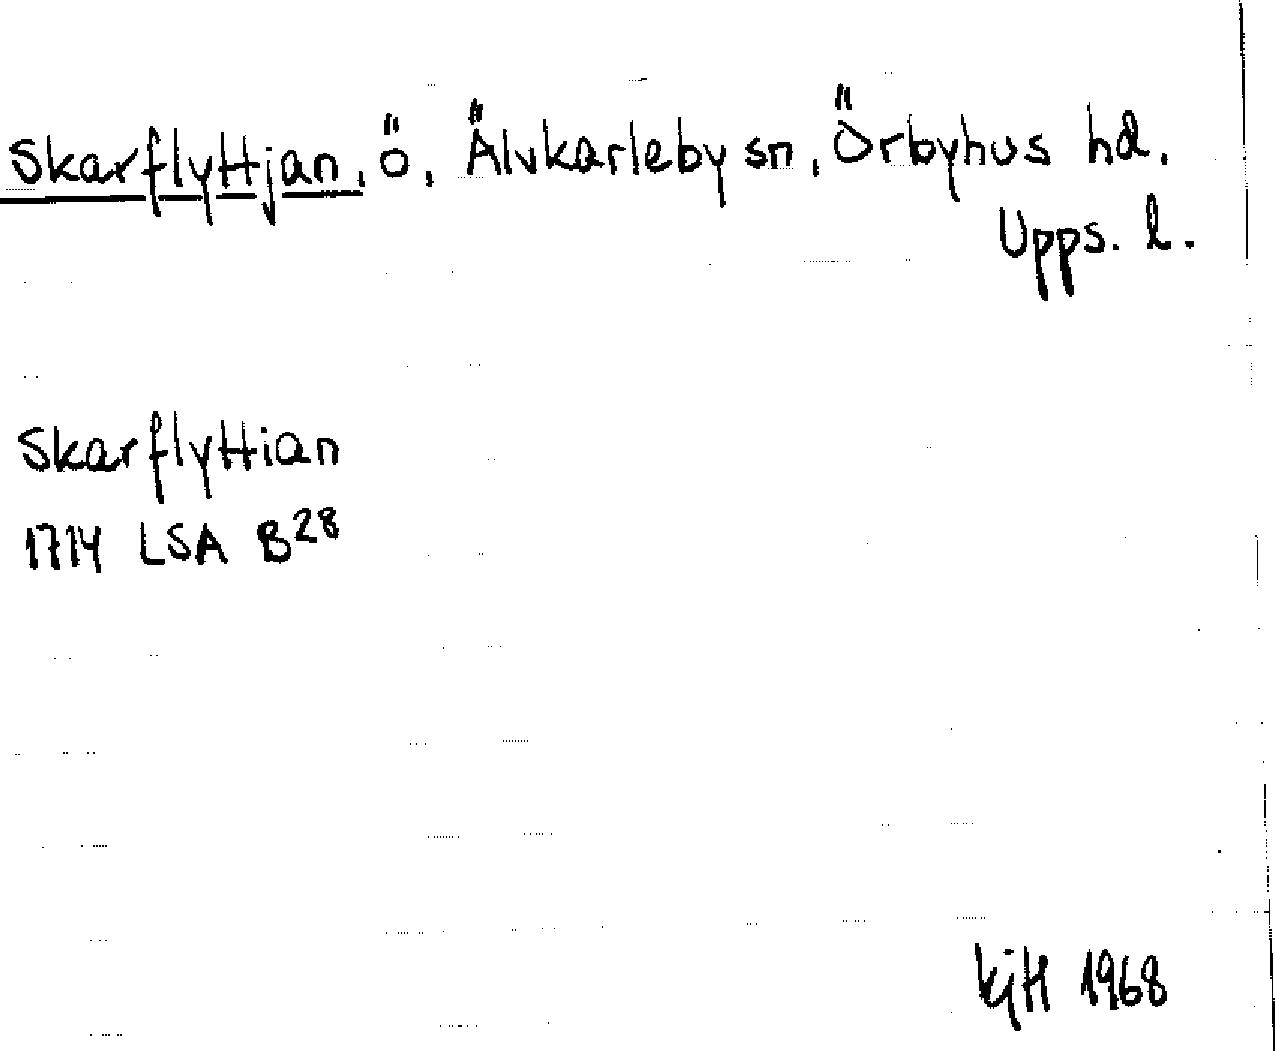 Skarflyttjan, ö, Älvkarleby sn, Örbyhus hd.
Upps. l.
Skarflyttian
1714 LSA B28
KjH 1968